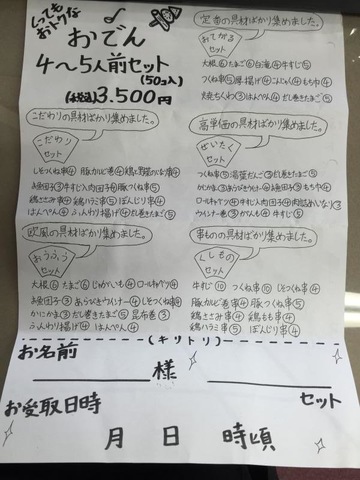 とっても
おトクな
おでん
4〜5人前セット
(50コ入)
(税込)3.500円
定番の具材ばかり集めました。
おてがる
セット
大根⑥たまご⑥白滝④牛すじ⑤
つくね串⑤厚揚げ④こんにゃく④もち巾④
焼ちくわ③はんぺん④だし巻たまご⑤
こだわりの具材ばかり集めました。
こだわり
セット
しそつくね串④豚カルビ巻④
牛すじ入肉団子④豚つくね串⑤
鶏ささみ串④鶏ハラミ串⑤ぼんじり串④
はんぺん④ふんわり揚げ④だし巻たまご⑤
高単価の具材ばかり集めました。
ぜいたく
セット
つくね串⑤湯葉だんご③だし巻たまご⑤
もち巾④
ロールキャベツ④牛すじ入肉団子④
ウインナー巻③がんも④牛すじ⑤
欧風の具材ばかり集めました。
おうふう
セット
大根⑥たまご⑥じゃがいも④ロールキャベツ④
お魚団子③あらびきウインナー④しそつくね串④
かにかま③だし巻きたまご⑤昆布巻③
ふんわり揚げ④はんぺん④
串ものの具材ばかり集めました。
くしもの
セット
牛すじ⑩つくね串⑩しそつくね串④
豚カルビ串④豚つくね串⑤
鶏ささみ串④鶏もも串④
鶏ハラミ串⑤ぼんじり串④
(キリトリ)
お名前
様
お受取日時
セット
月 日 時頃